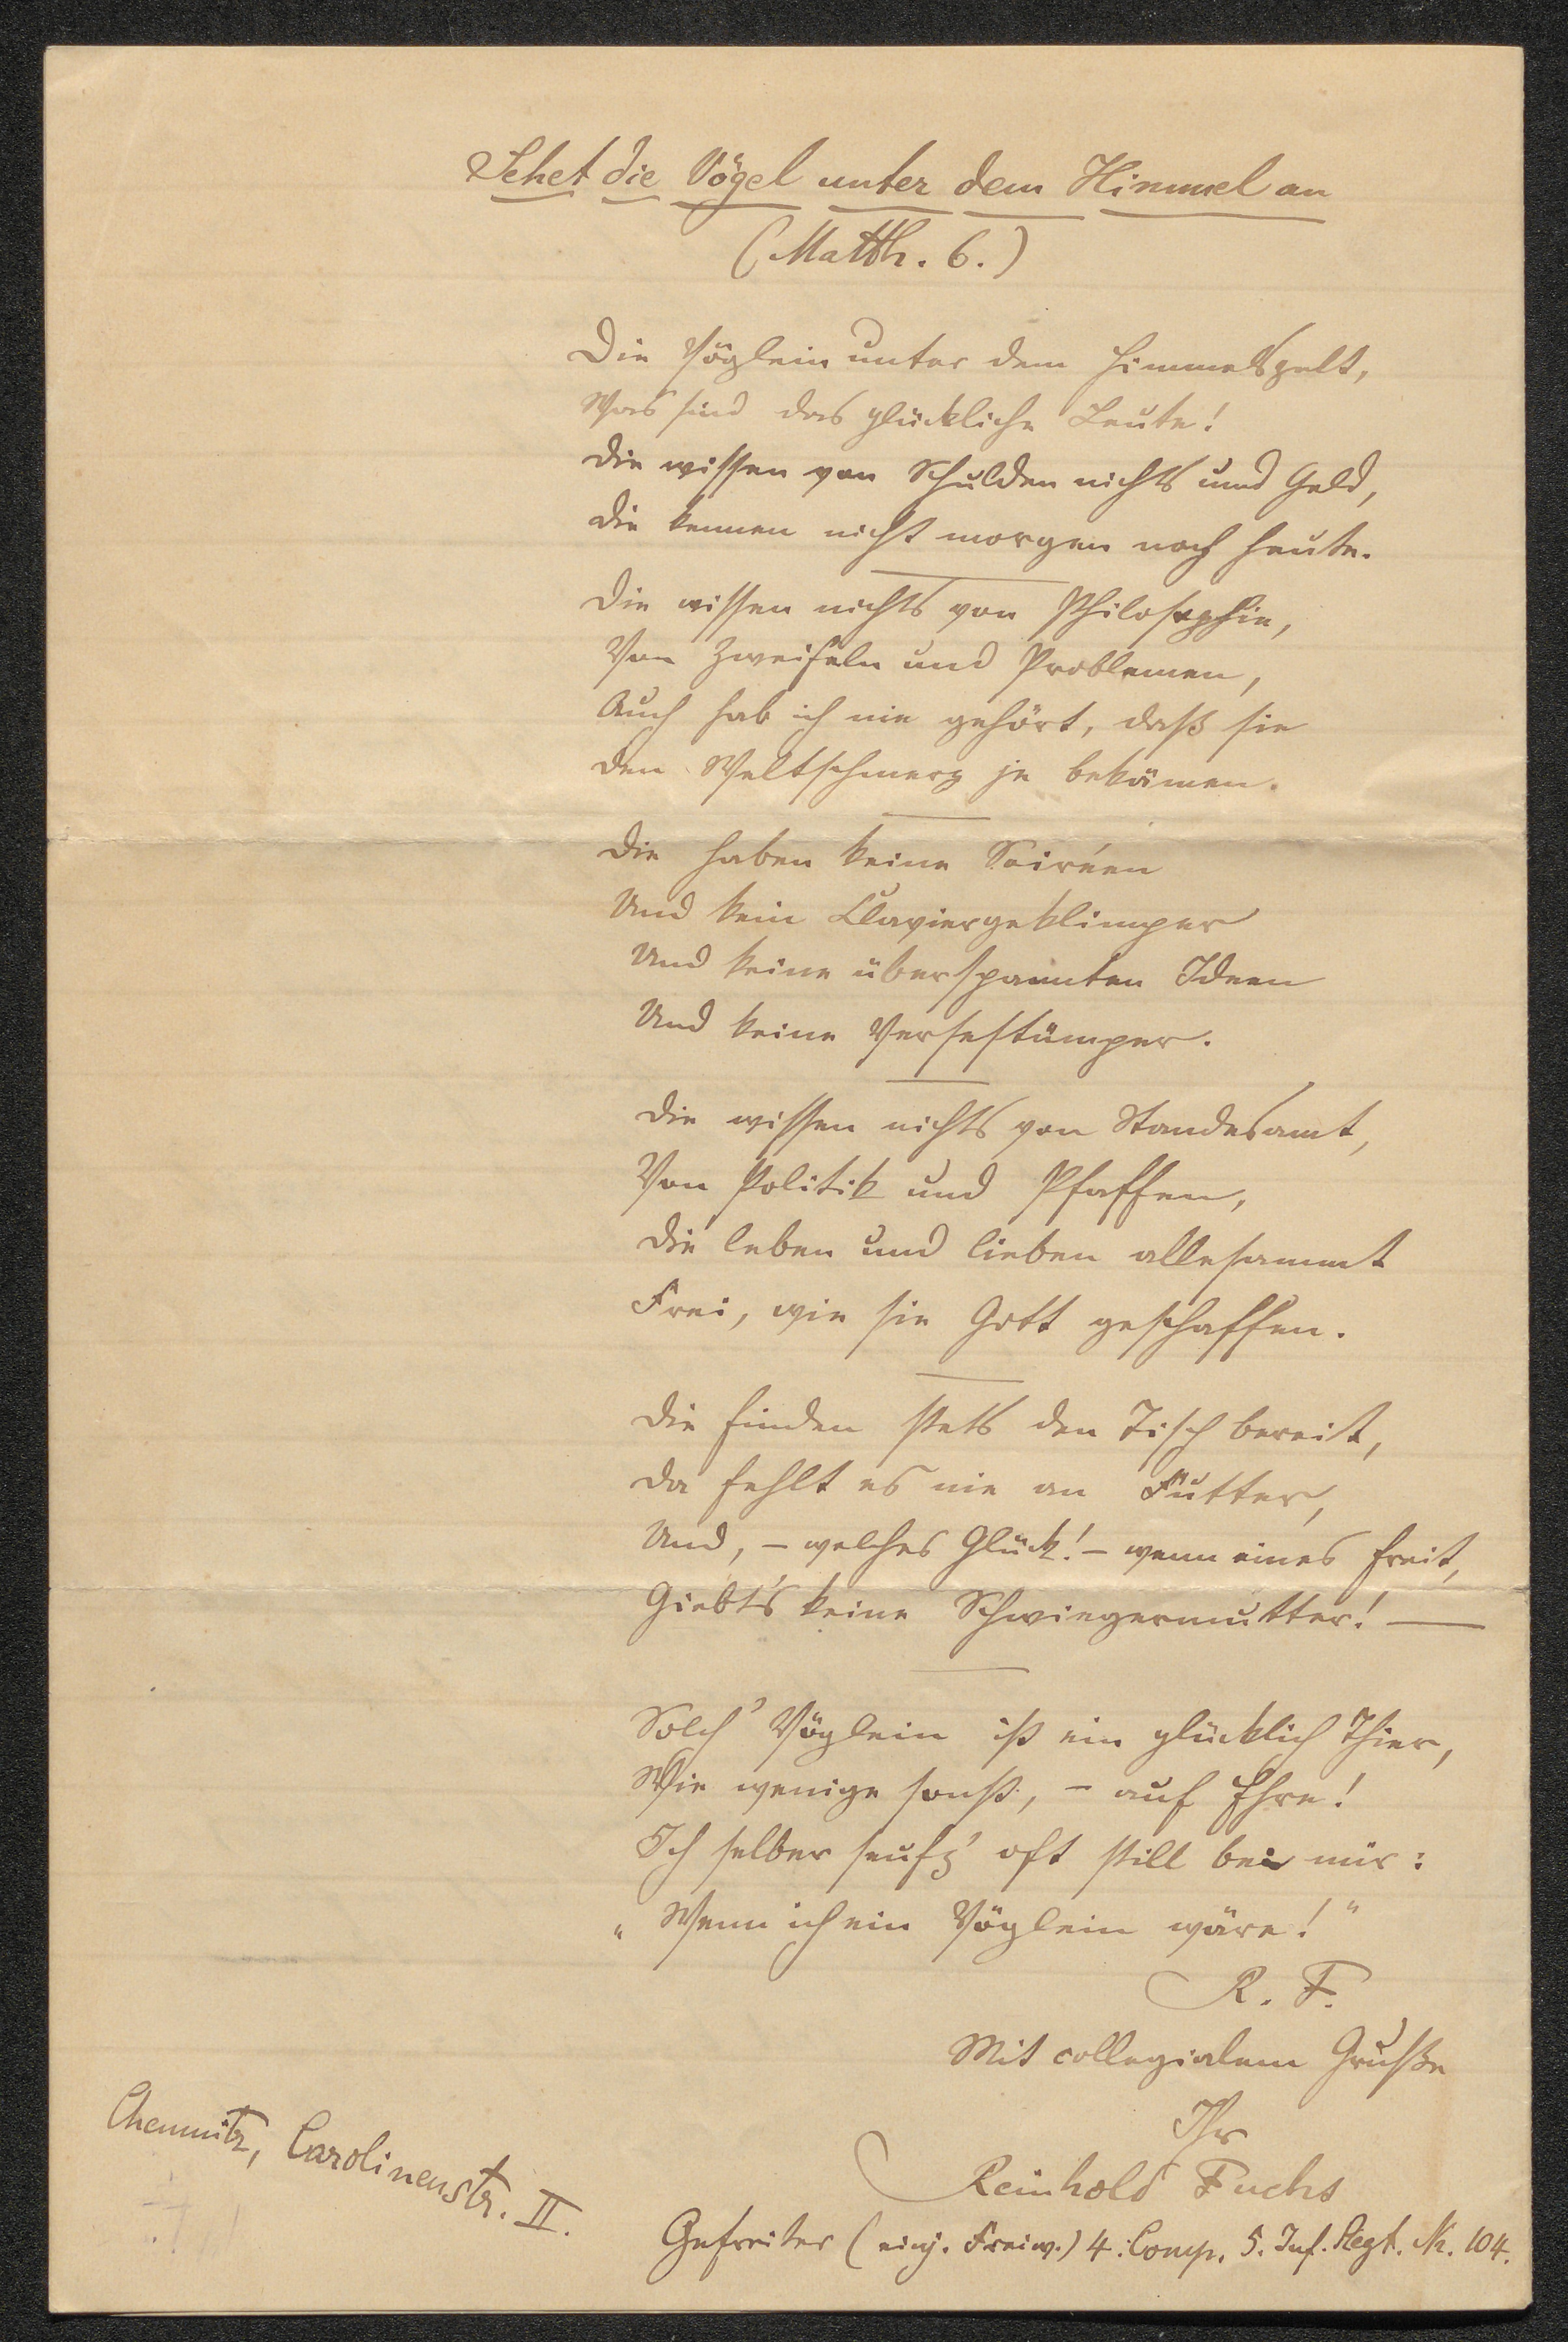 Sehet die Vögel unter dem Himmel an
(Matth. 6.)
Die Vöglein unter dem Himmelszelt,
Was sind das glückliche Leute!
Die wissen von Schulden nichts und Geld,
Die kennen nicht morgen noch heute.
Die wissen nichts von Philosophie,
Von Zweifeln und Problemen,
Auch hab ich nie gehört, daß sie
Den Weltschmerz je bekämen.
Die haben keine Soiréen
Und kein Claviergeklimper
Und keine überspannten Ideen
Und keine Versestümper.
Die wissen nichts von Standesamt,
Von Politik und Pfaffen,
Die leben und lieben allesammt
Frei, wie sie Gott geschaffen.
Die finden stets den Tisch bereit,
Da fehlt es nie an Futter,
Und, – welches Glück! – wenn eines freit,
Giebt's keine Schwiegermutter! —
Solch' Vöglein ist ein glücklich Thier,
Wie wenige sonst, – auf Ehre!
Ich selber seufz' oft still bei mir:
„Wenn ich ein Vöglein wäre!"
R. F.
Mit collegialem Gruße
Ihr
Reinhold Fuchs
Gefreiter (einj. Freiw.) 4. Comp. 5. Inf. Regt. Nr. 104.
Chemnitz, Carolinenstr. II.